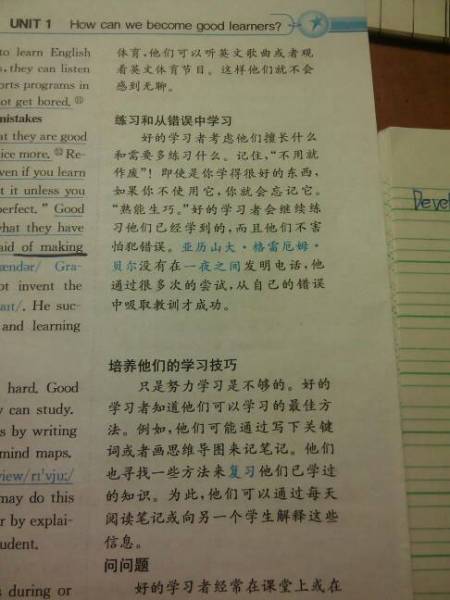 UNIT 1 How can we become good learners?
to learn English
, they can listen
orts programs in
ot get bored.
mistakes
at they are good
ice more. ⑫ Re-
ven if you learn
t it unless you
perfect." Good
what they have
aid of making
Gra-
ot invent the
He suc-
and learning
hard. Good
y can study.
s by writing
mind maps.
view/rɪ'vjuː/
may do this
r by explai-
udent.
s during or
体育,他们可以听英文歌曲或者观
看英文体育节目。这样他们就不会
感到无聊。
练习和从错误中学习
好的学习者考虑他们擅长什么
和需要多练习什么。记住,“不用就
作废”!即使是你学得很好的东西,
如果你不使用它,你就会忘记它。
“熟能生巧。”好的学习者会继续练
习他们已经学到的,而且他们不害
怕犯错误。亚历山大·格雷厄姆·
贝尔没有在一夜之间发明电话,他
通过很多次的尝试,从自己的错误
中吸取教训才成功。
培养他们的学习技巧
只是努力学习是不够的。好的
学习者知道他们可以学习的最佳方
法。例如,他们可能通过写下关键
词或者画思维导图来记笔记。他们
也寻找一些方法来复习他们已学过
的知识。为此,他们可以通过每天
阅读笔记或向另一个学生解释这些
信息。
问问题
好的学习者经常在课堂上或在
Devel